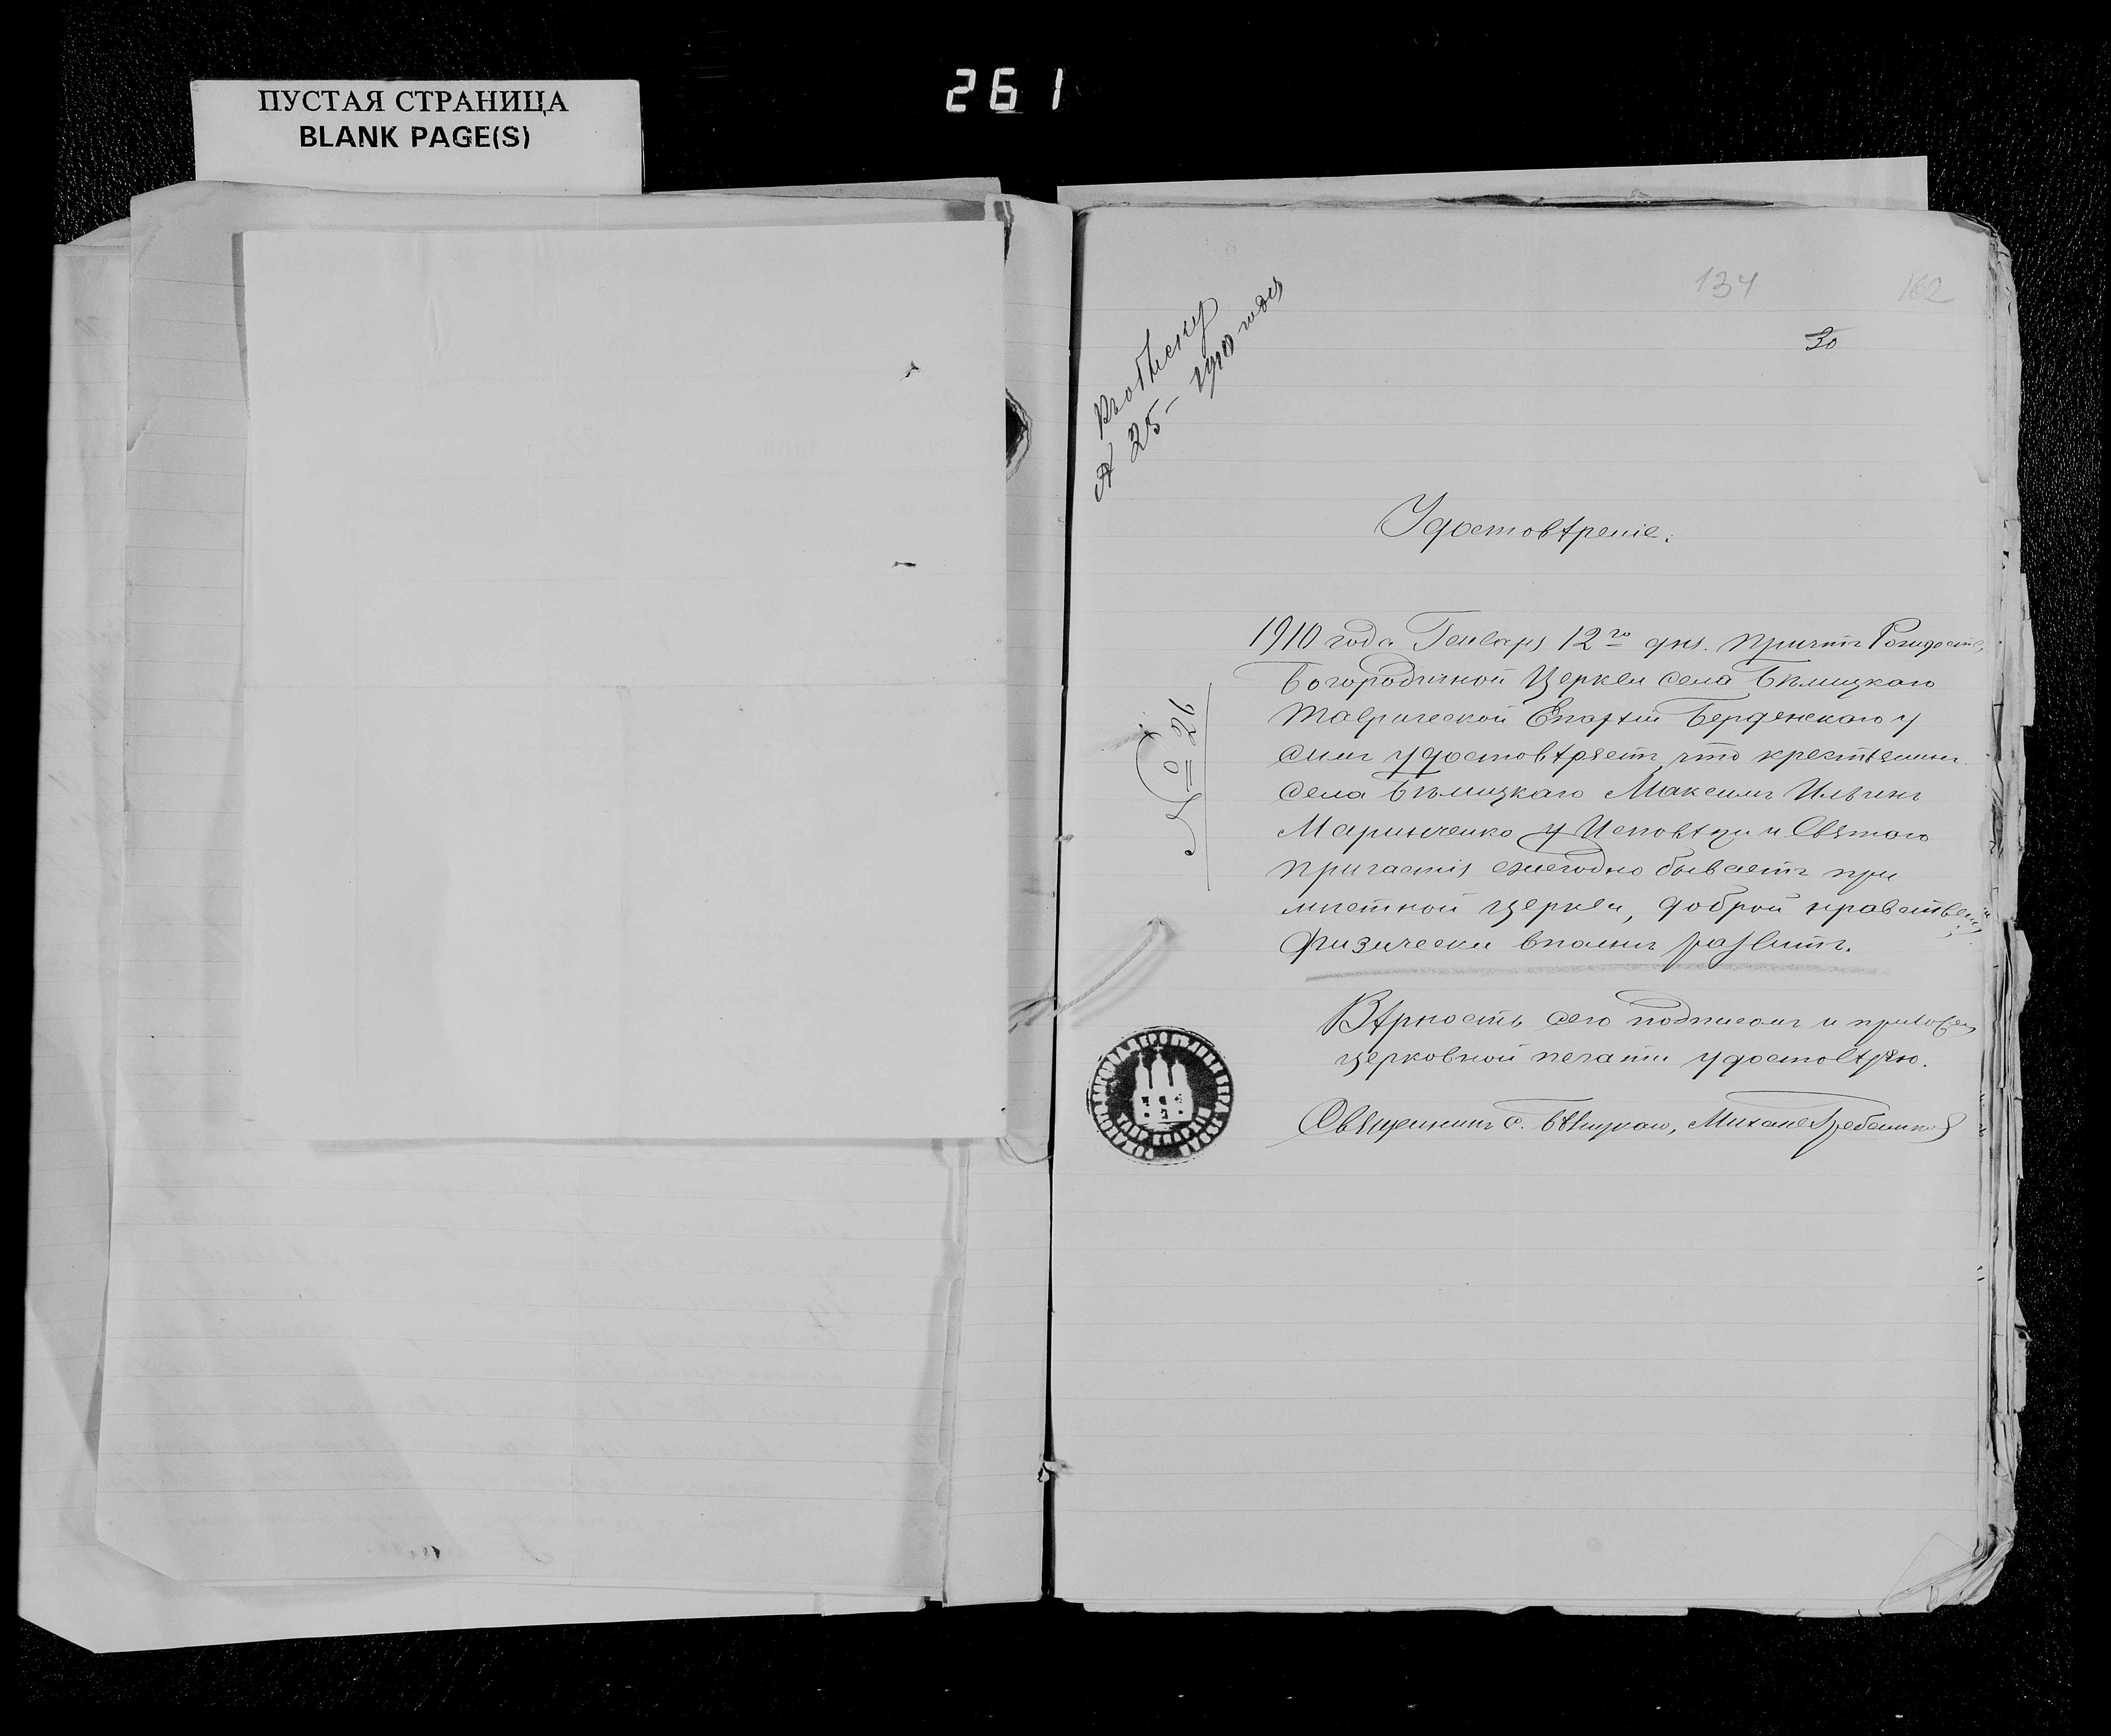 ПУСТАЯ СТРАНИЦА
BLANK PAGE(S)
261
134
162
30
Къ обыску
№ 25 - 1910 года
Удостовѣреніе.
№ 26
1910 года Генваря 12го дня. Причтъ Рождество
Богородичной Церкви села Бѣлицкаго
Таврической Епархіи Бердянскаго у
симъ удостовѣряетъ, что крестьянинъ
села Бѣлицкаго Максимъ Ильинъ
Маринченко у Исповѣди и Святого
причастія ежегодно бываетъ при
мѣстной церкви, доброй нравствен
физически вполнѣ развитъ.
Вѣрность сего подписомъ и прилож
церковной печати удостовѣряю.
Священникъ с. Бѣлицкаго, Михаилъ